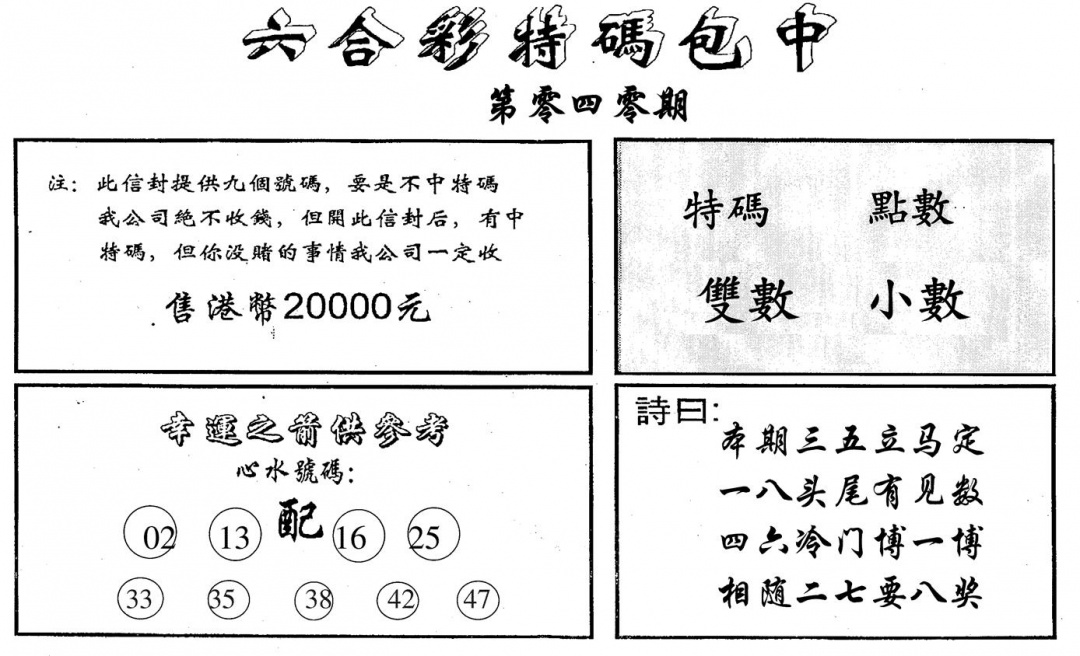 六合彩特碼包中
第零四零期
注：此信封提供九個號碼，要是不中特碼
我公司絶不收錢，但開此信封后，有中
特碼，但你没賭的事情我公司一定收
售港幣20000元
特碼 點數
雙數 小數
幸運之箭供參考
心水號碼：
配
02 13 16 25
33 35 38 42 47
詩曰：
本期三五立马定
一八头尾有见数
四六冷门博一博
相随二七要八奖